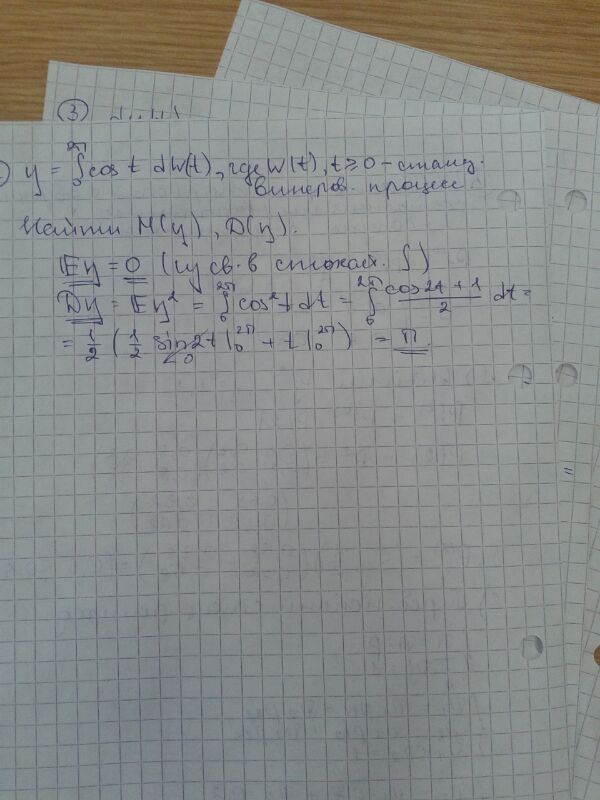 ③
y = ∫₀^{2π} cos t dW(t), где W(t), t ≥ 0 – станд.
винеров. процесс.
Найти M(y), D(y).
Ey = 0 (из св-в стохаст. ∫)
Dy = Ey² = ∫₀^{2π} cos² t dt = ∫₀^{2π} (cos 2t + 1)/2 dt =
= 1/2 (1/2 sin 2t |₀^{2π} + t |₀^{2π}) = π.
=0
=